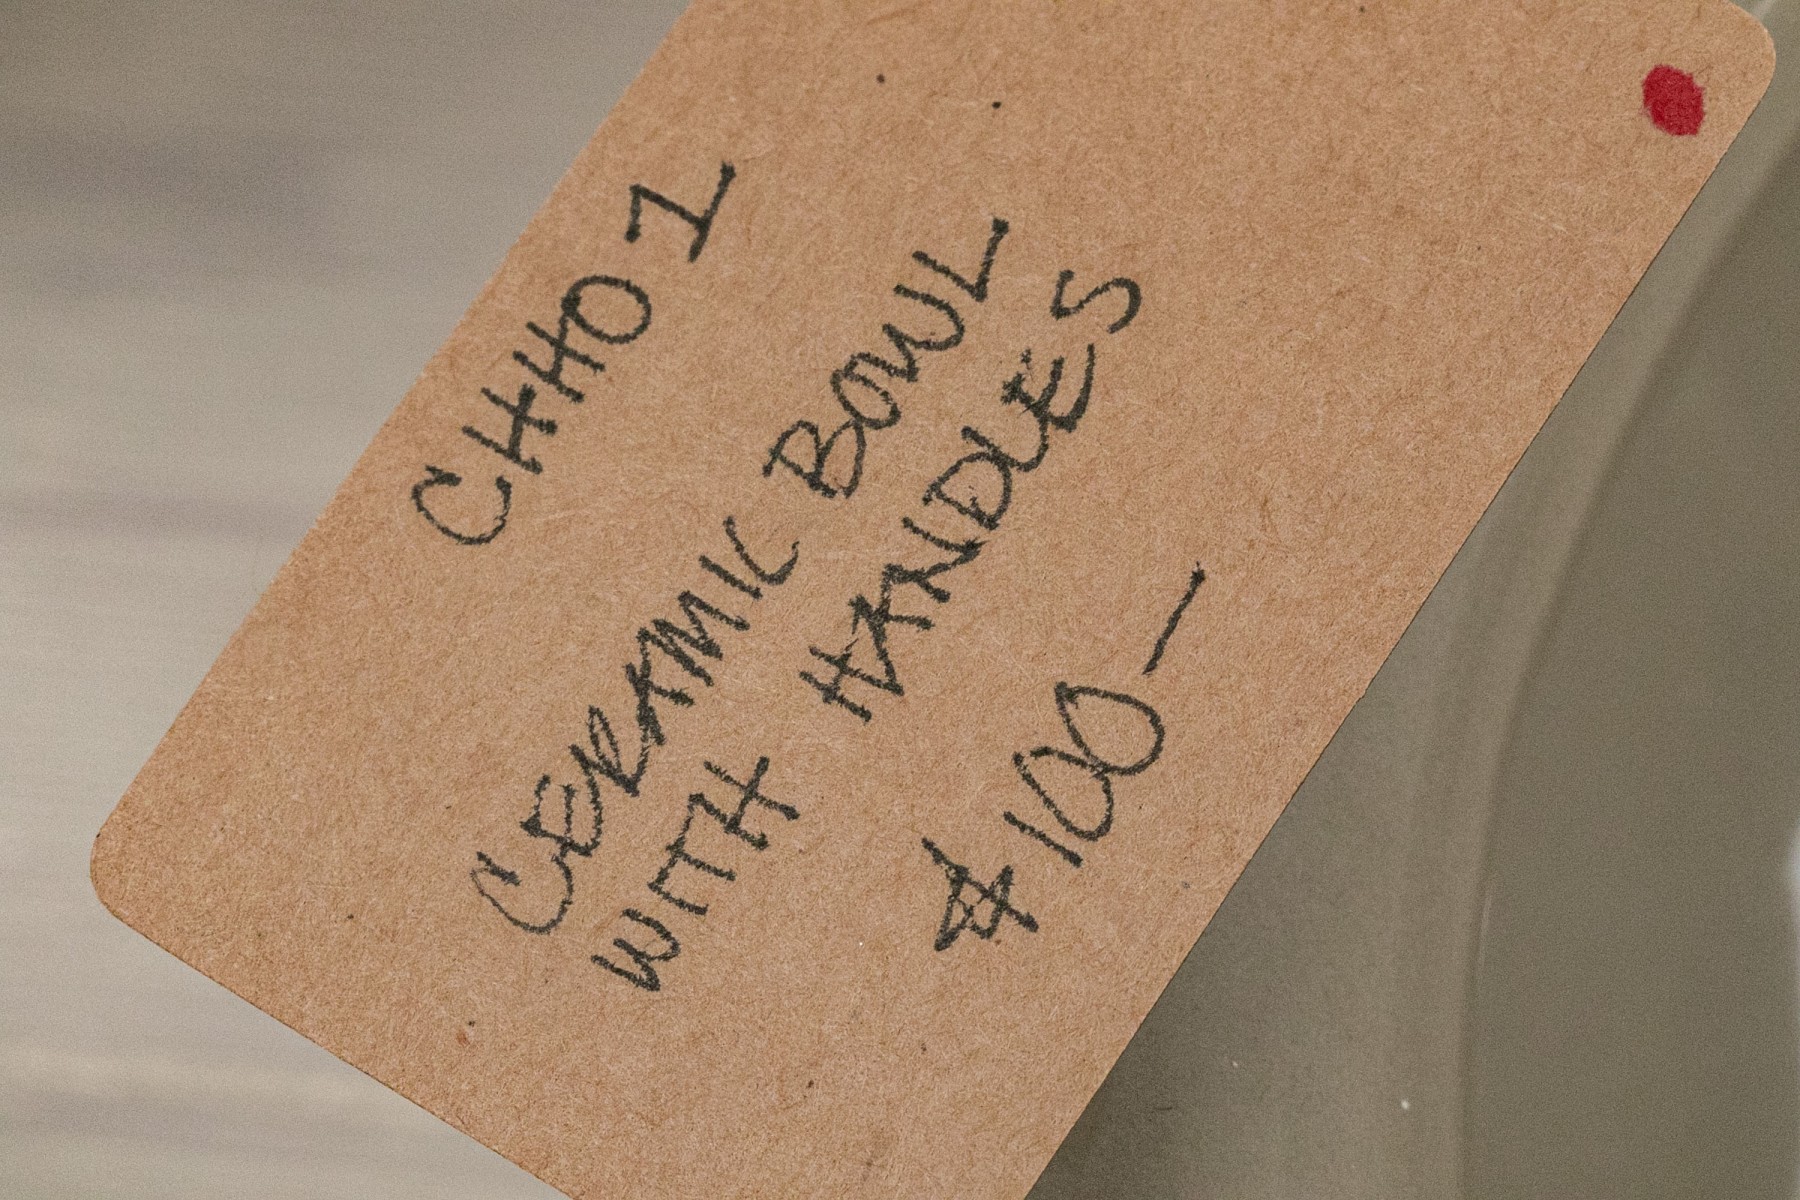 CHHO 1
CERAMIC BOWL
WITH HANDLES
$100—